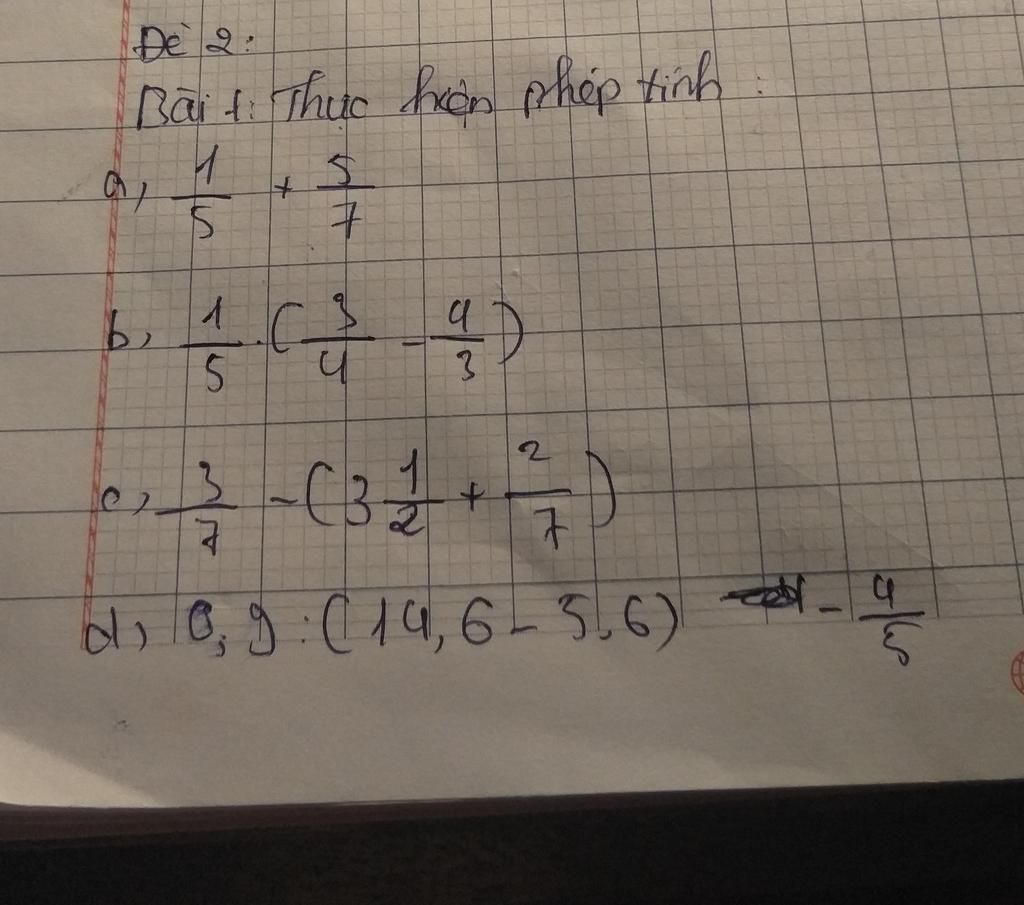 Đề 2:
Bài 1: Thực hiện phép tính:
a, 1/5 + 5/7
b, 1/5 . (3/4 - 4/3)
c, 3/7 - (3 1/2 + 2/7)
d, 0,9 : (14,6 - 5,6) - 4/5